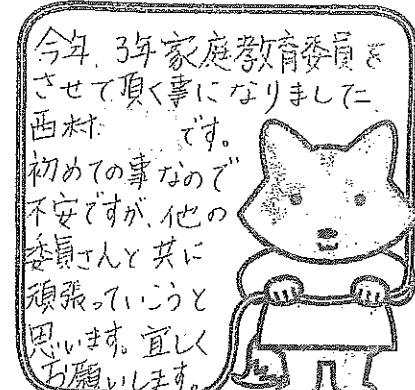 今年、3年家庭教育委員を
させて頂く事になりました
西村 です。
初めての事なので
不安ですが、他の
委員さんと共に
頑張っていこうと
思います。宜しく
お願いします。